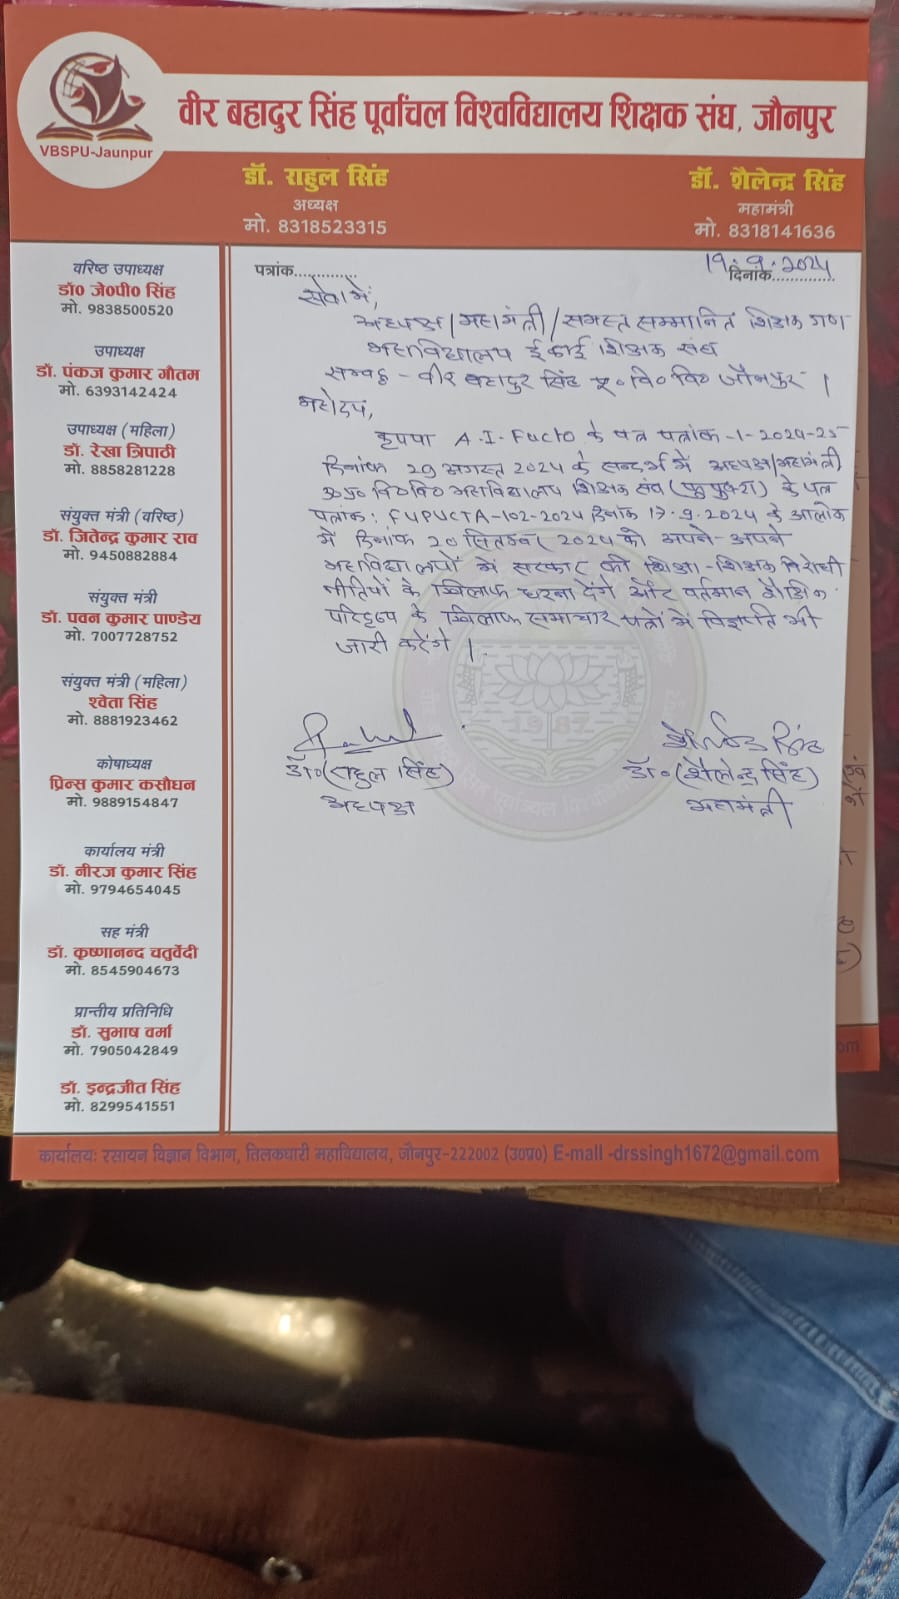 VBSPU-Jaunpur
वीर बहादुर सिंह पूर्वांचल विश्वविद्यालय शिक्षक संघ, जौनपुर
डॉ. राहुल सिंह
अध्यक्ष
मो. 8318523315
डॉ. शैलेन्द्र सिंह
महामंत्री
मो. 8318141636
वरिष्ठ उपाध्यक्ष
डॉ० जे०पी० सिंह
मो. 9838500520
उपाध्यक्ष
डॉ. पंकज कुमार गौतम
मो. 6393142424
उपाध्यक्ष (महिला)
डॉ. रेखा त्रिपाठी
मो. 8858281228
संयुक्त मंत्री (वरिष्ठ)
डॉ. जितेन्द्र कुमार राव
मो. 9450882884
संयुक्त मंत्री
डॉ. पवन कुमार पाण्डेय
मो. 7007728752
संयुक्त मंत्री (महिला)
श्वेता सिंह
मो. 8881923462
कोषाध्यक्ष
प्रिन्स कुमार कसौधन
मो. 9889154847
कार्यालय मंत्री
डॉ. नीरज कुमार सिंह
मो. 9794654045
सह मंत्री
डॉ. कृष्णानन्द चतुर्वेदी
मो. 8545904673
प्रान्तीय प्रतिनिधि
डॉ. सुभाष वर्मा
मो. 7905042849
डॉ. इन्द्रजीत सिंह
मो. 8299541551
पत्रांक.............
19.9.2024
दिनांक..............
सेवा में,
अध्यक्ष/महामंत्री/समस्त सम्मानित शिक्षक गण
महाविद्यालय ईकाई शिक्षक संघ
सम्बद्ध - वीर बहादुर सिंह पू० वि० वि० जौनपुर।
महोदय,
कृपया A.I-Fucto के पत्र पत्रांक -1-2024-25
दिनांक 29 अगस्त 2024 के सन्दर्भ में अध्यक्ष/महामंत्री
उ०प्र० वि०वि० महाविद्यालय शिक्षक संघ (फुपुक्टा) के पत्र
पत्रांक: FUPUCTA-102-2024 दिनांक 17.9.2024 के आलोक
में दिनांक 20 सितम्बर 2024 को अपने-अपने
महाविद्यालयों में सरकार की शिक्षा-शिक्षक विरोधी
नीतियों के खिलाफ धरना देंगे और वर्तमान शैक्षिक
परिदृश्य के खिलाफ समाचार पत्रों में विज्ञप्ति भी
जारी करेंगे।
1987
Rahul
शैलेन्द्र सिंह
डॉ० (राहुल सिंह)
अध्यक्ष
डॉ० (शैलेन्द्र सिंह)
महामंत्री
कार्यालयः रसायन विज्ञान विभाग, तिलकधारी महाविद्यालय, जौनपुर-222002 (उ०प्र०) E-mall -drssingh1672@gmail.com